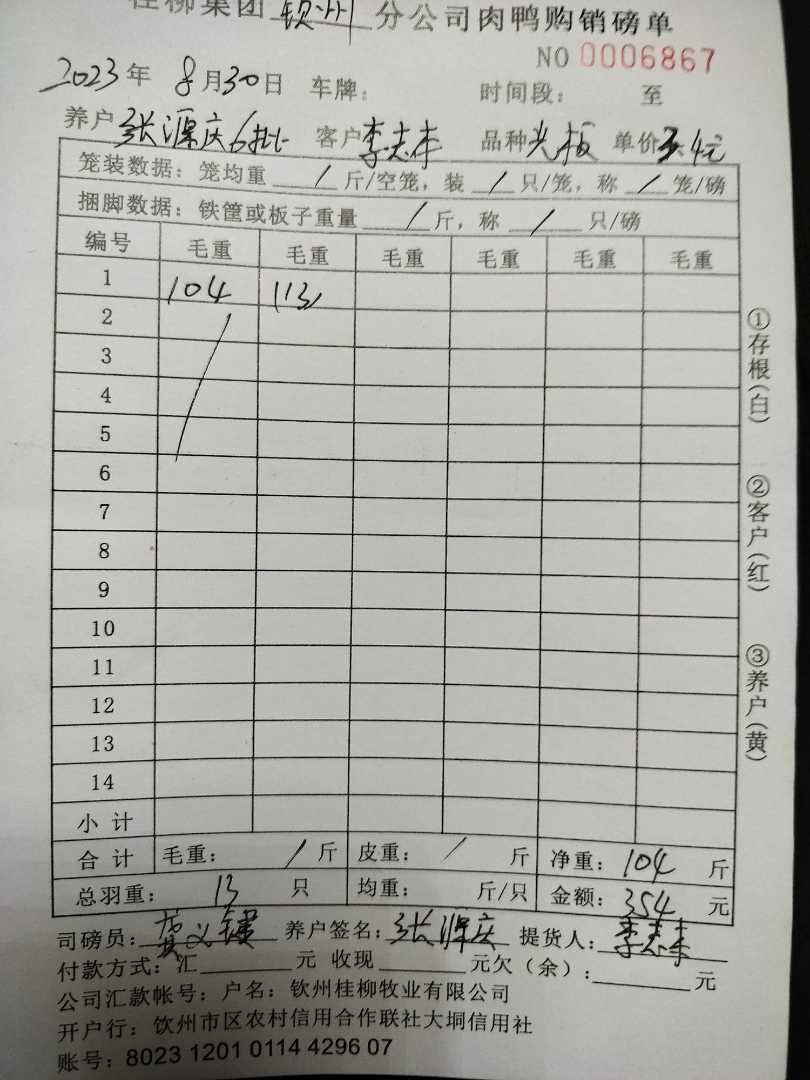 桂柳集团 钦州 分公司肉鸭购销磅单
NO 0006867
2023年 8月30日 车牌: 时间段: 至
养户 张源庆6批 客户 李志丰 品种 光板 单价 3.4元
笼装数据: 笼均重 / 斤/空笼, 装 / 只/笼, 称 / 笼/磅
捆脚数据: 铁筐或板子重量 / 斤, 称 / 只/磅
编号 毛重 毛重 毛重 毛重 毛重 毛重
1 104 113
2
3
4
5
6
7
8
9
10
11
12
13
14
小计
合计 毛重: / 斤 皮重: / 斤 净重: 104 斤
总羽重: 13 只 均重: 斤/只 金额: 354 元
司磅员: 黄义键 养户签名: 张源庆 提货人: 李志丰
付款方式: 汇 元 收现 元欠(余): 元
公司汇款帐号: 户名: 钦州桂柳牧业有限公司
开户行: 钦州市区农村信用合作联社大垌信用社
账号: 8023 1201 0114 4296 07
①存根(白)
②客户(红)
③养户(黄)